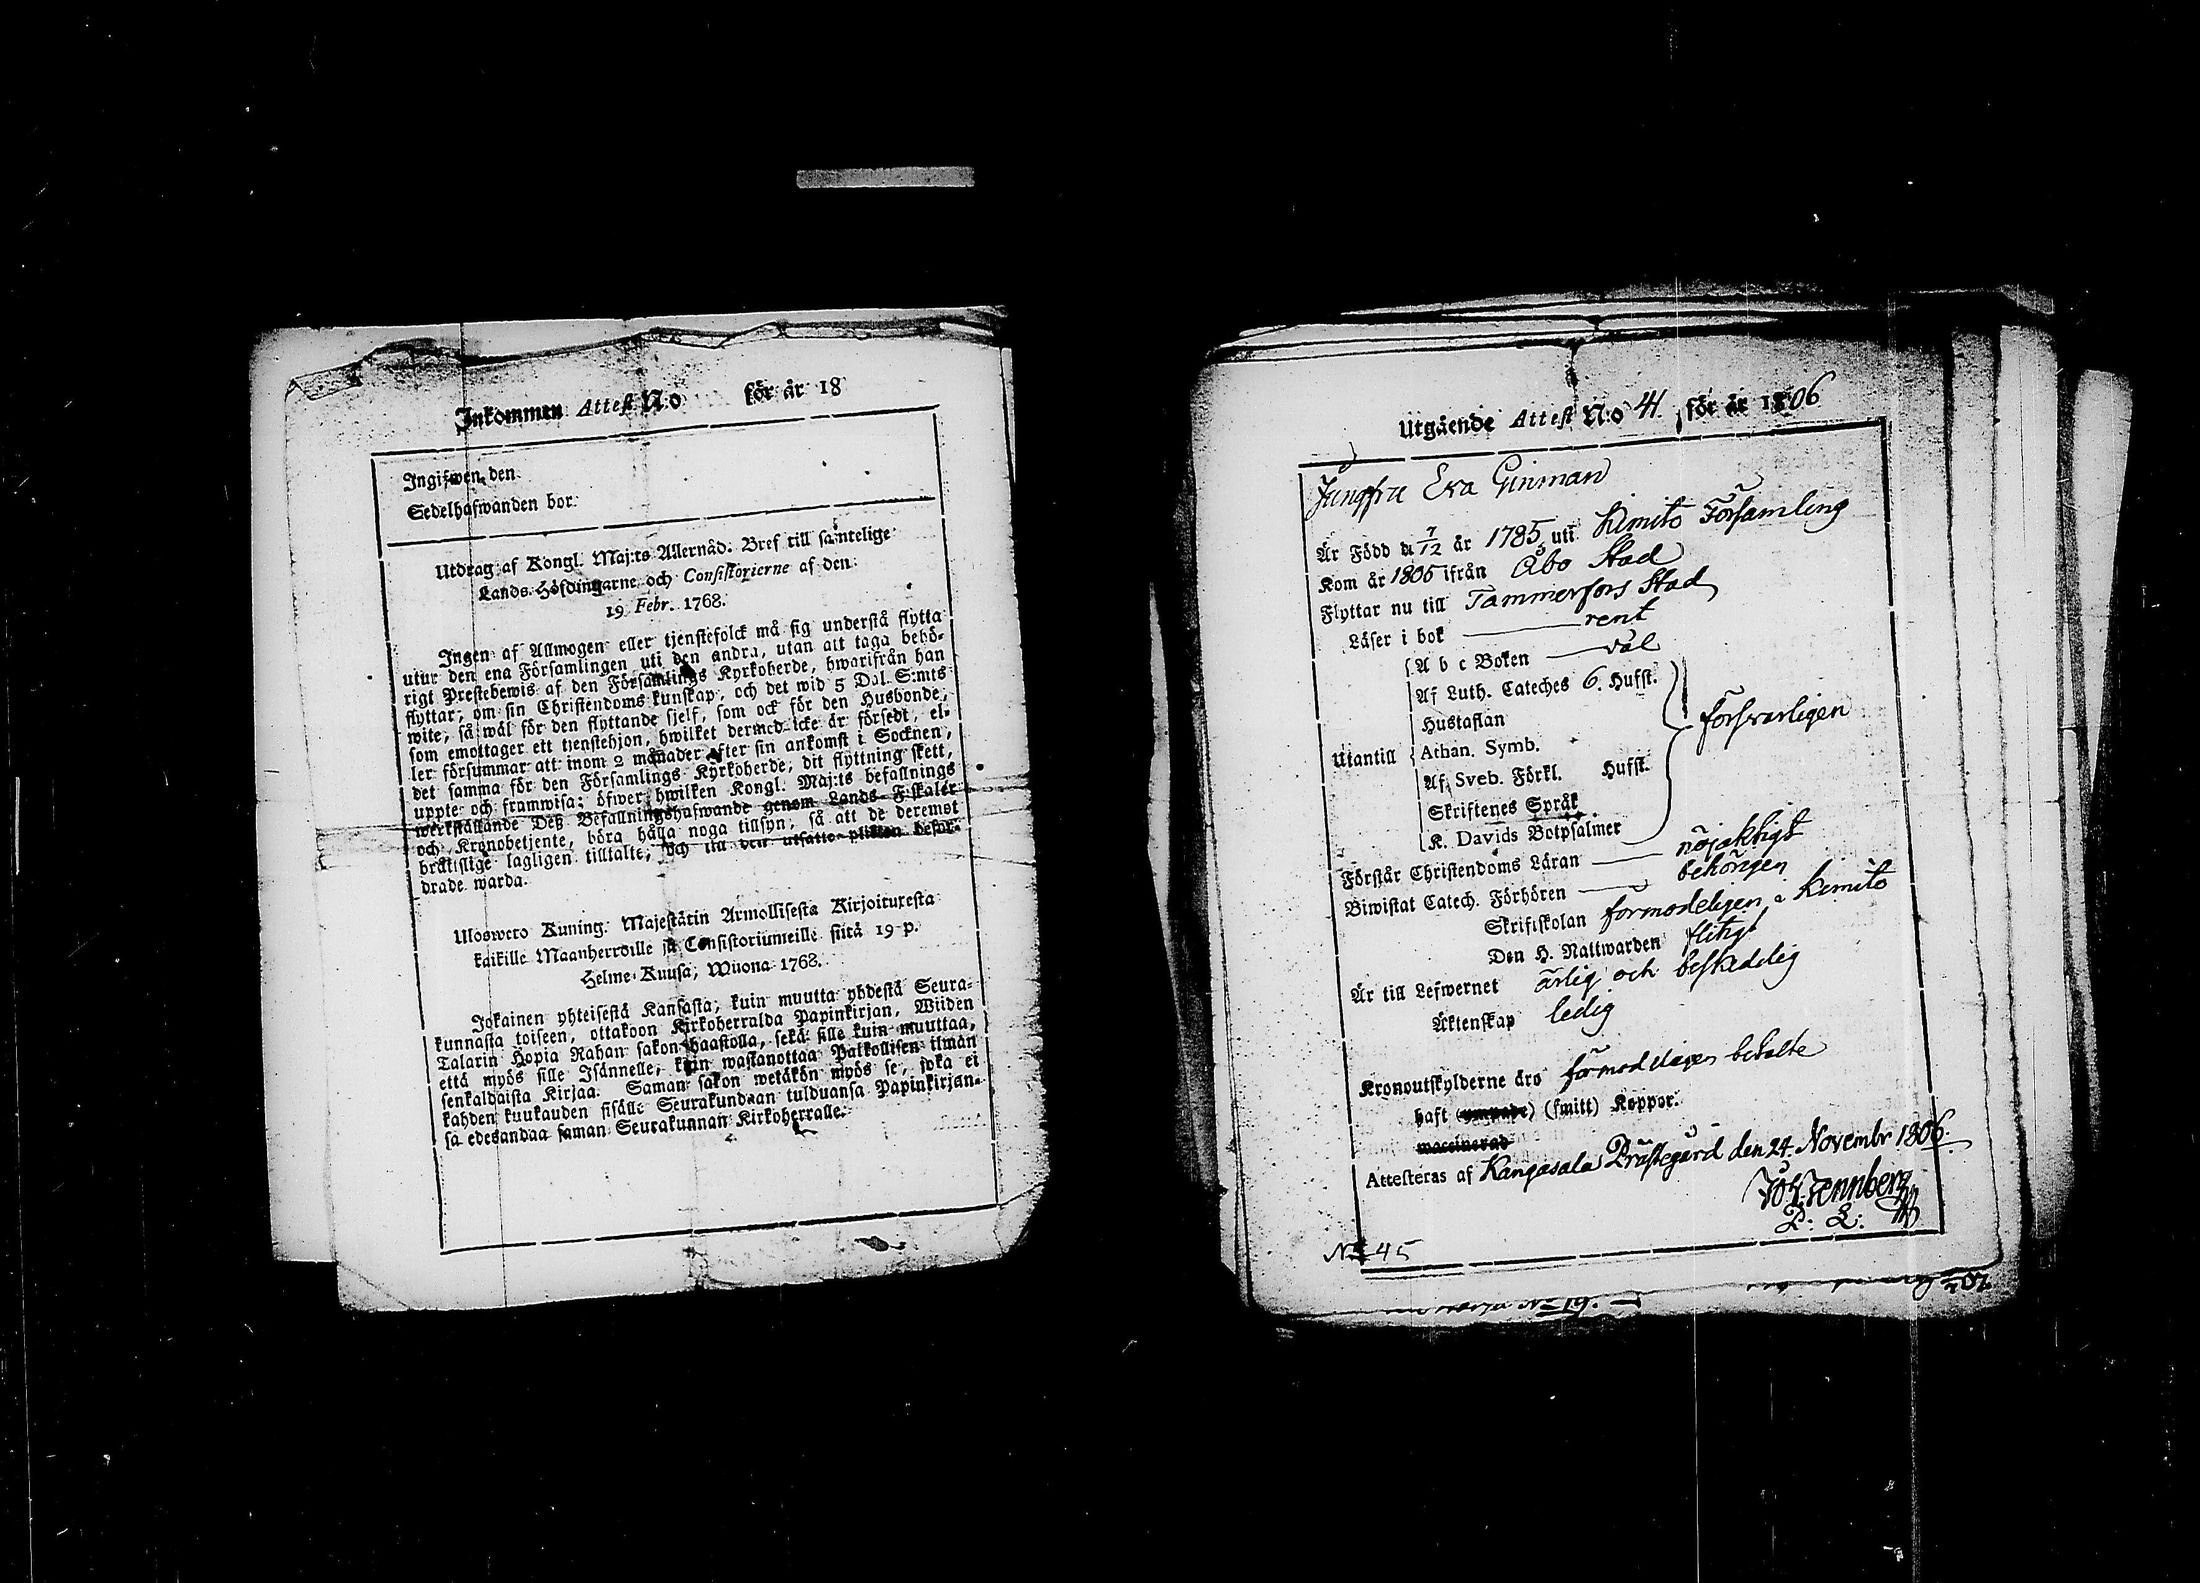 Inkommen Attest N:o för år 18
Ingifwen den
Sedelhafwanden bor:
Utdrag af Kongl. Maj:ts Allernåd. Bref till samtelige
Lands-Höfdingarne och Consistorierne af den
19 Febr. 1768.
Ingen af Allmogen eller tjenstefolck må sig understå flytta
utur den ena Församlingen uti den andra, utan att taga behö-
rigt Prestebewis af den Församlings Kyrkoherde, hwarifrån han
flyttar, om sin Christendoms kunskap, och det wid 5 Dal. S:mts
wite, så wäl för den flyttande sjelf, som ock för den Husbonde,
som emottager ett tjenstehjon, hwilket dermed icke är försedt, el-
ler försummar att inom 2 månader efter sin ankomst i Socknen,
det samma för den Församlings Kyrkoherde, dit flyttning skett,
uppte och framwisa; öfwer hwilken Kongl. Maj:ts befallnings
werkställande Deß Befallningshafwande genom Lands-Fiskaler
och Kronobetjente, böra hålla noga tillsyn, så att de deremot
bråttslige lagligen tilltalte, och till den utsatte plikten befor-
drade warda.
Ulosweto Kuning. Majestätin Armollisesta Kirjoituxesta
kaikille Maanherroille ja Consistoriumeille siitä 19 p.
Helme-Kuusa, Wuona 1768.
Jokainen yhteisestä Kansasta, kuin muutta yhdestä Seura-
kunnasta toiseen, ottakoon Kirkoherralda Papinkirjan, Wiiden
Talarin Hopia Rahan sakon haastolla, sekä sille kuin muuttaa,
että myös sille Isännelle, kuin wastanottaa Palkollisen ilman
senkaldaista Kirjaa. Saman sakon wetäkön myös se, joka ei
kahden kuukauden sisälle Seurakundaan tulduansa Papinkirjan-
sa edesandaa saman Seurakunnan Kirkoherralle.
Utgående Attest N:o 41. för år 1806
Jungfru Eva Ginman
Är Född d. 7/12 år 1785 uti Kimito Församling
Kom år 1805 ifrån Åbo Stad
Flyttar nu till Tammerfors Stad
Läser i bok rent
A b c Boken väl
Af Luth. Cateches 6. Hufst.
Hustaflan
försvarligen
Utantill
Athan. Symb.
Af Sveb. Förkl. Hufst.
Skriftenes Språk
K. Davids Botpsalmer
Förstår Christendoms Läran nöjaktigt
Biwistat Catech. Förhören behörigen
Skriftskolan förmodeligen i Kimito
Den H. Nattwarden flitigt
Är till Lefwernet ärlig och beskedelig
Äktenskap ledig
Kronoutskylderne äro förmodeligen betalte
haft (ympade) (smitt) Koppor.
vaccinerad
Attesteras af Kangasala Prästegård den 24. Novembr 1806.
Joh. Tennberg
P: L:
N:o 45
N:o 19.